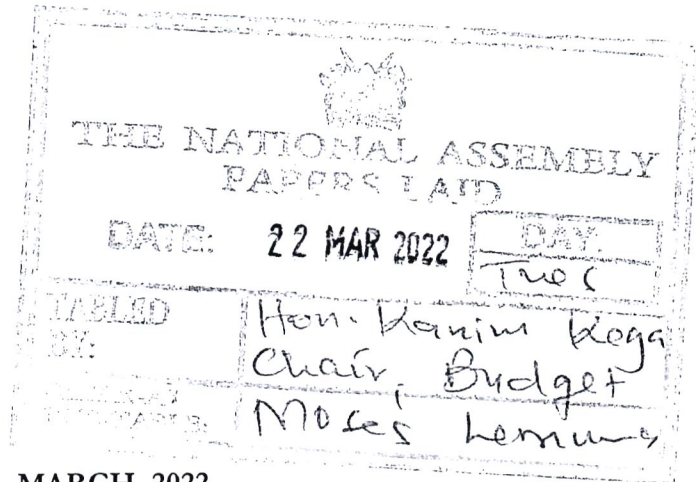 THE NATIONAL ASSEMBLY
PAPERS LAID
DATE: 22 MAR 2022 DAY:
Tues
TABLED BY: Hon. Kanini Kega
Chair, Budget
Moses
MARCH, 2022